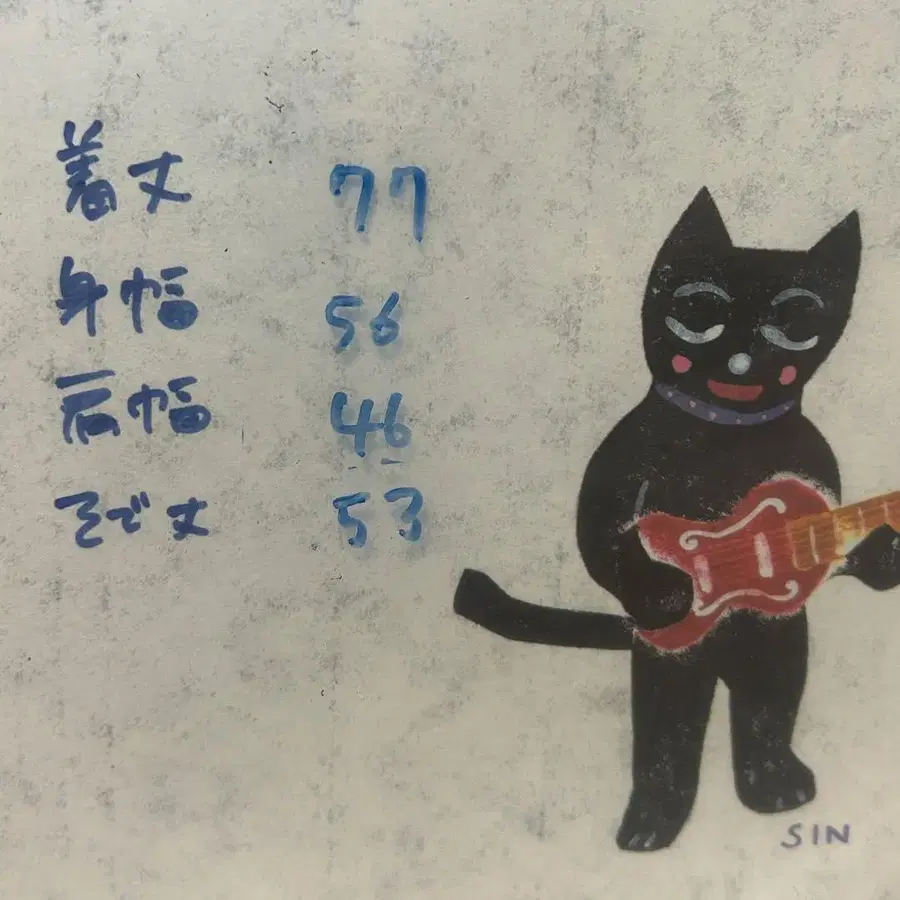 着丈 77
身幅 56
肩幅 46
そで丈 53
SIN